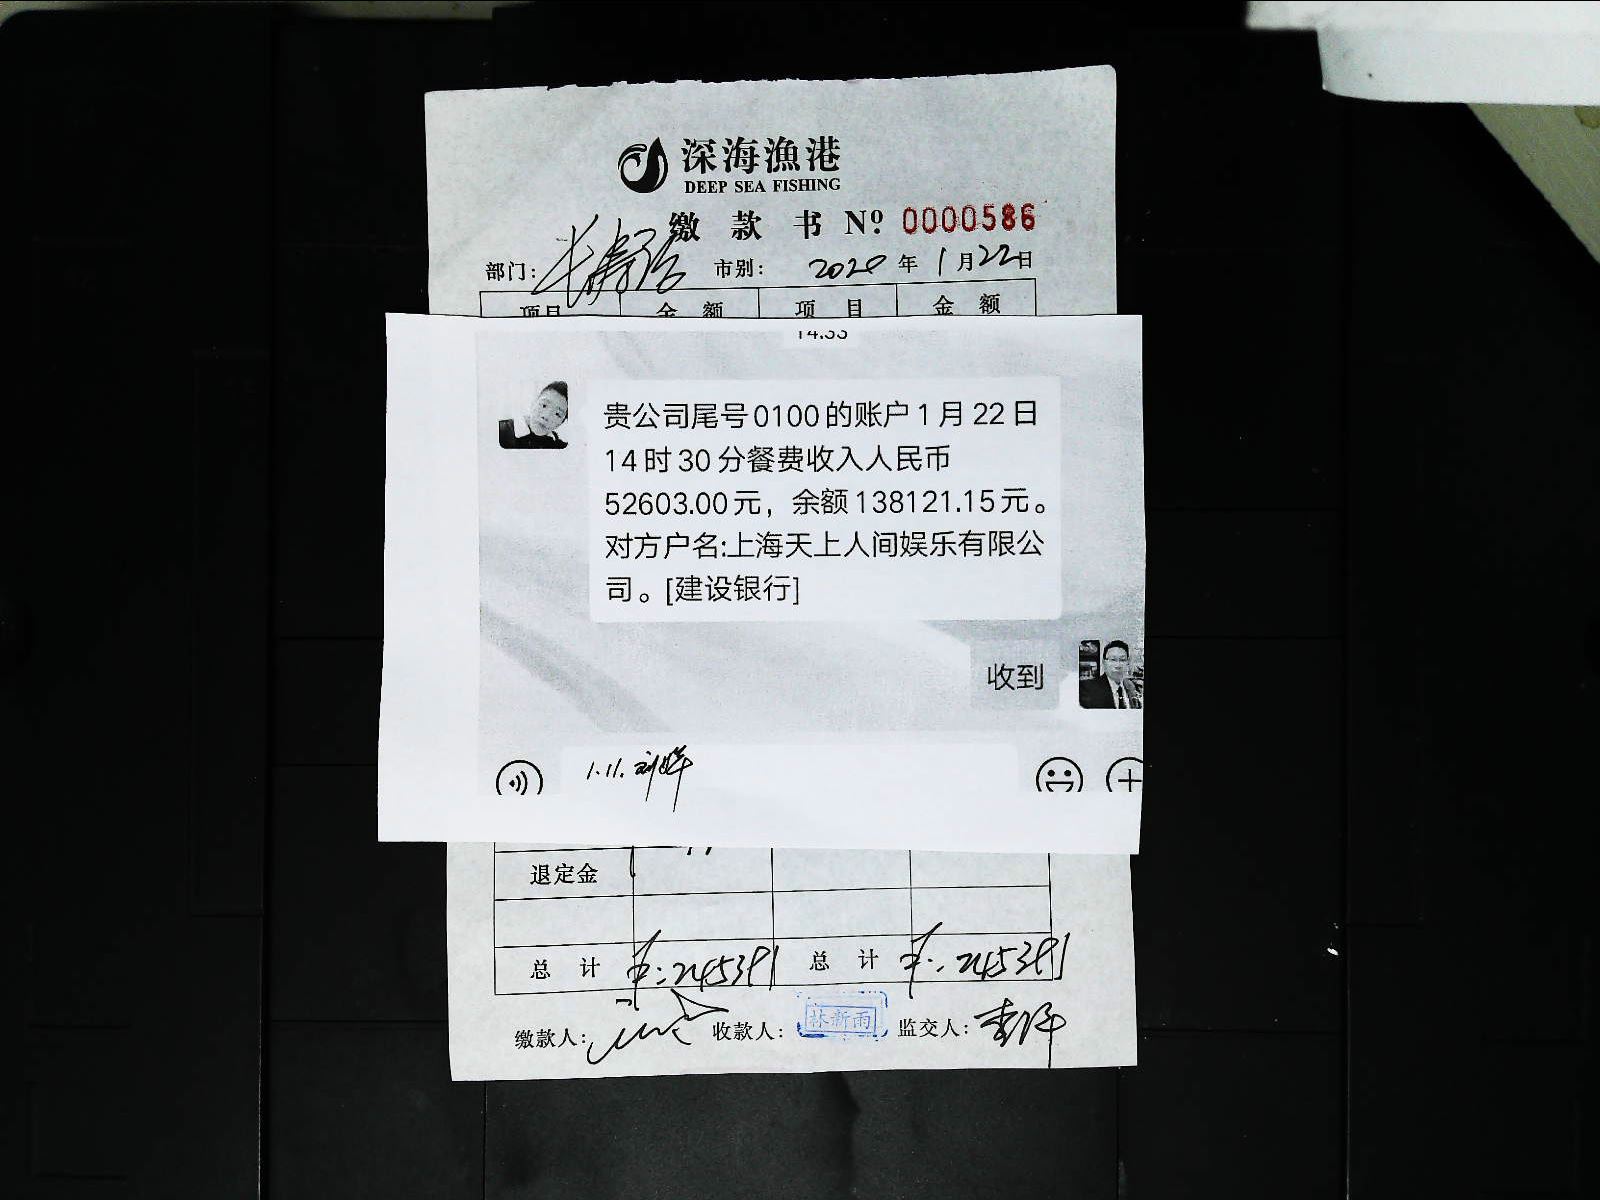 深海漁港
DEEP SEA FISHING
缴款书 Nº 0000586
部门: 长寿路 市别: 2020 年 1 月 22 日
项目 金额 项目 金额
14:33
贵公司尾号0100的账户1月22日
14时30分餐费收入人民币
52603.00元，余额138121.15元。
对方户名:上海天上人间娱乐有限公
司。[建设银行]
收到
1.11.
退定金
总计 总计
缴款人: 收款人: 林新雨 监交人: